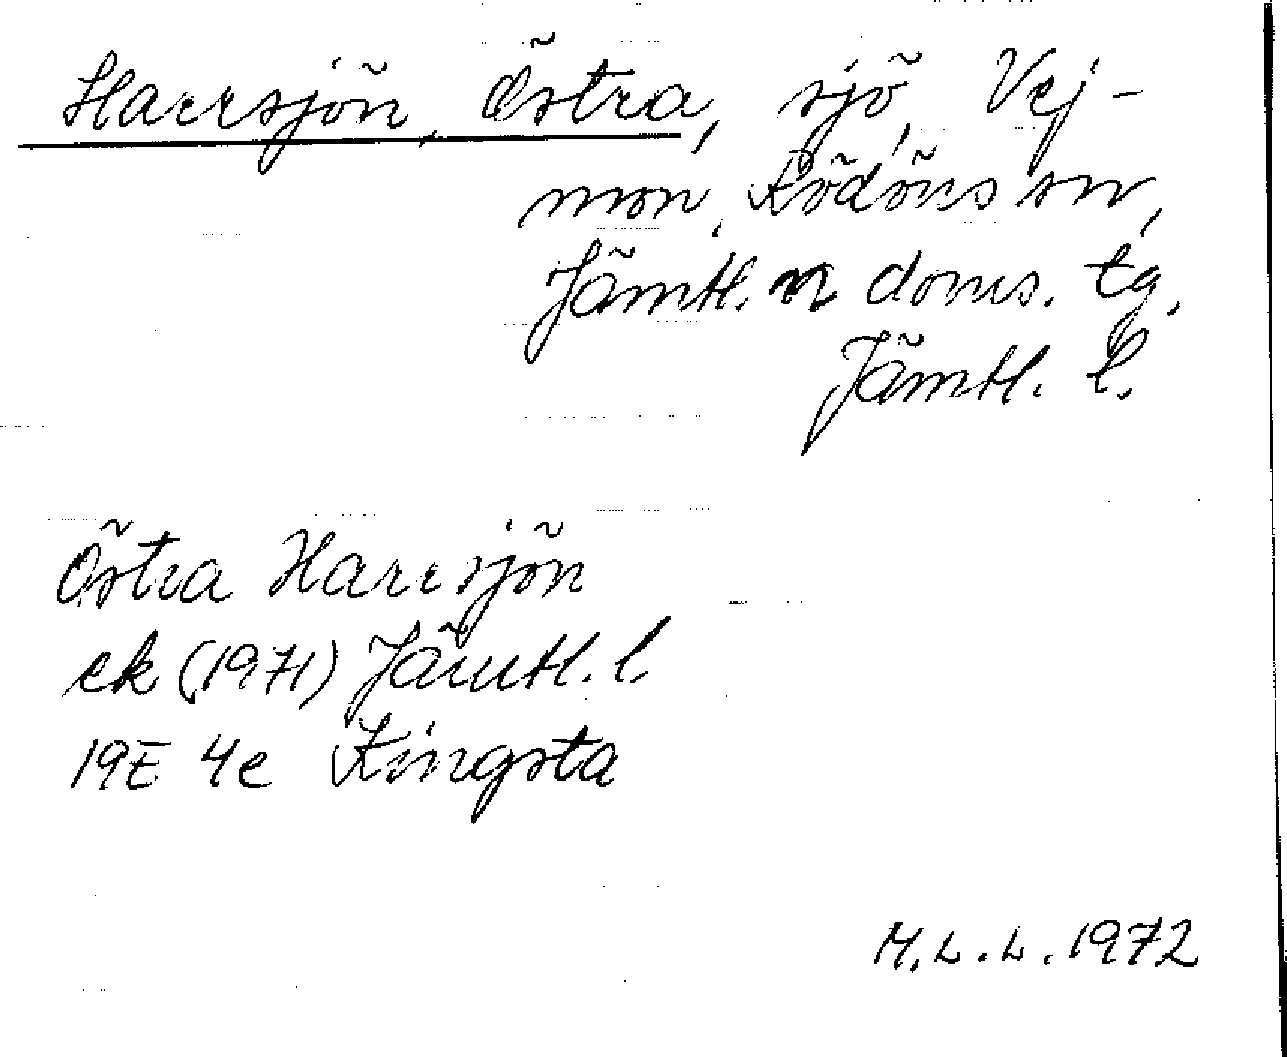 Harrsjön, Östra, sjö, Vej-
mon, Rödöns sn,
Jämtl. n doms. tg.
Jämtl. l.
Östra Harrsjön
ek (1971) Jämtl. l.
19E 4e Kingsta
M.L.L. 1972